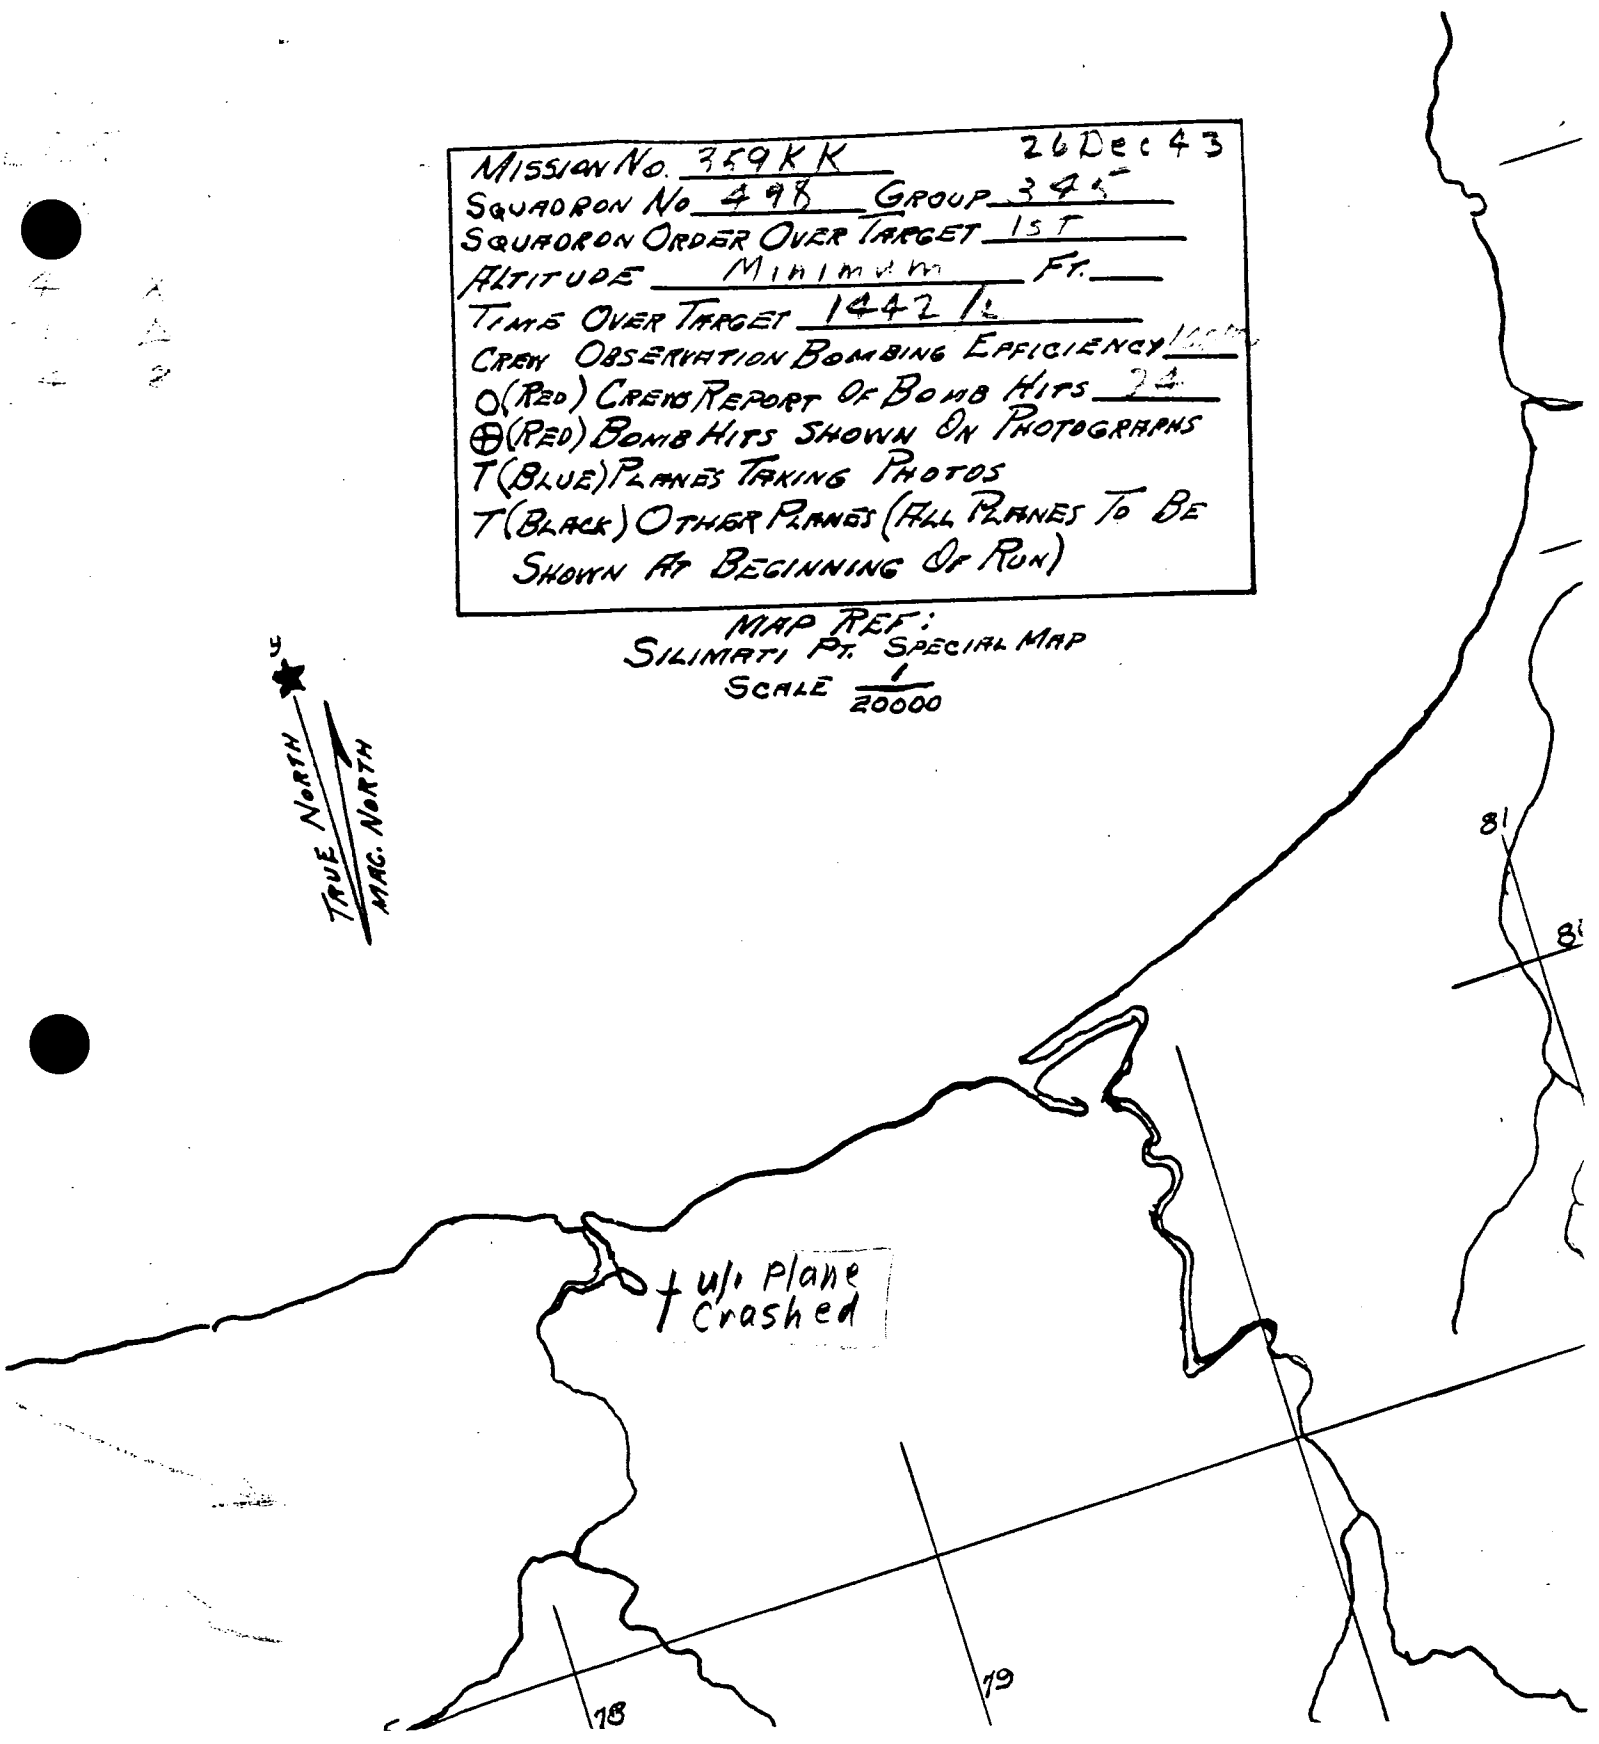 26 Dec 43
MISSION NO. 359 K K
SQUADRON NO 498 GROUP 345
SQUADRON ORDER OVER TARGET 1ST
ALTITUDE Minimum FT.
TIME OVER TARGET 1442
CREW OBSERVATION BOMBING EFFICIENCY
O (RED) CREWS REPORT OF BOMB HITS 24
⊕ (RED) BOMB HITS SHOWN ON PHOTOGRAPHS
T (BLUE) PLANES TAKING PHOTOS
T (BLACK) OTHER PLANES (ALL PLANES TO BE
SHOWN AT BEGINNING OF RUN)
MAP REF:
SILIMATI PT. SPECIAL MAP
SCALE 1/20000
y
TRUE NORTH
MAG. NORTH
81
U/I Plane
Crashed
79
78